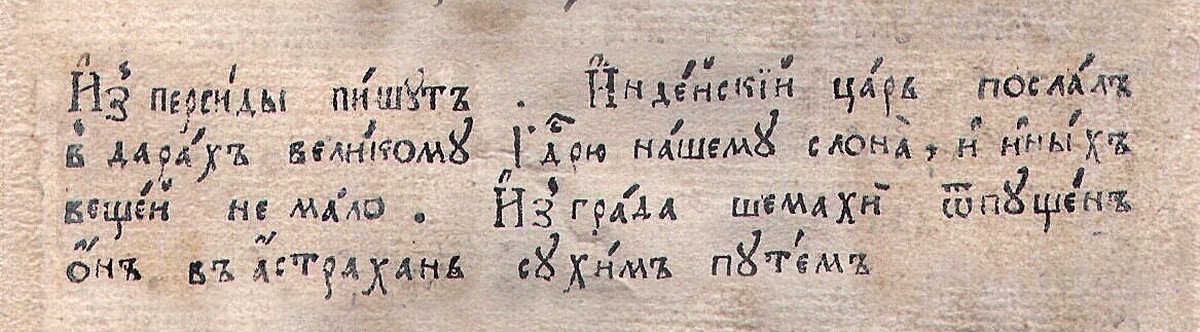 И҆з̾ персі́ды пи́шутъ . И҆нде́йскїй ца́рь посла́лъ
в̾ дара́хъ вели́кому Г дⷭ҇рю на́шему слона̀, и҆ и҆ны́хъ
веще́й не ма́ло . И҆з̾ гра́да шемахи̑ ѿпуще́нъ
ѻ҆́нъ въ а҆́страхань сухи́мъ путе́мъ